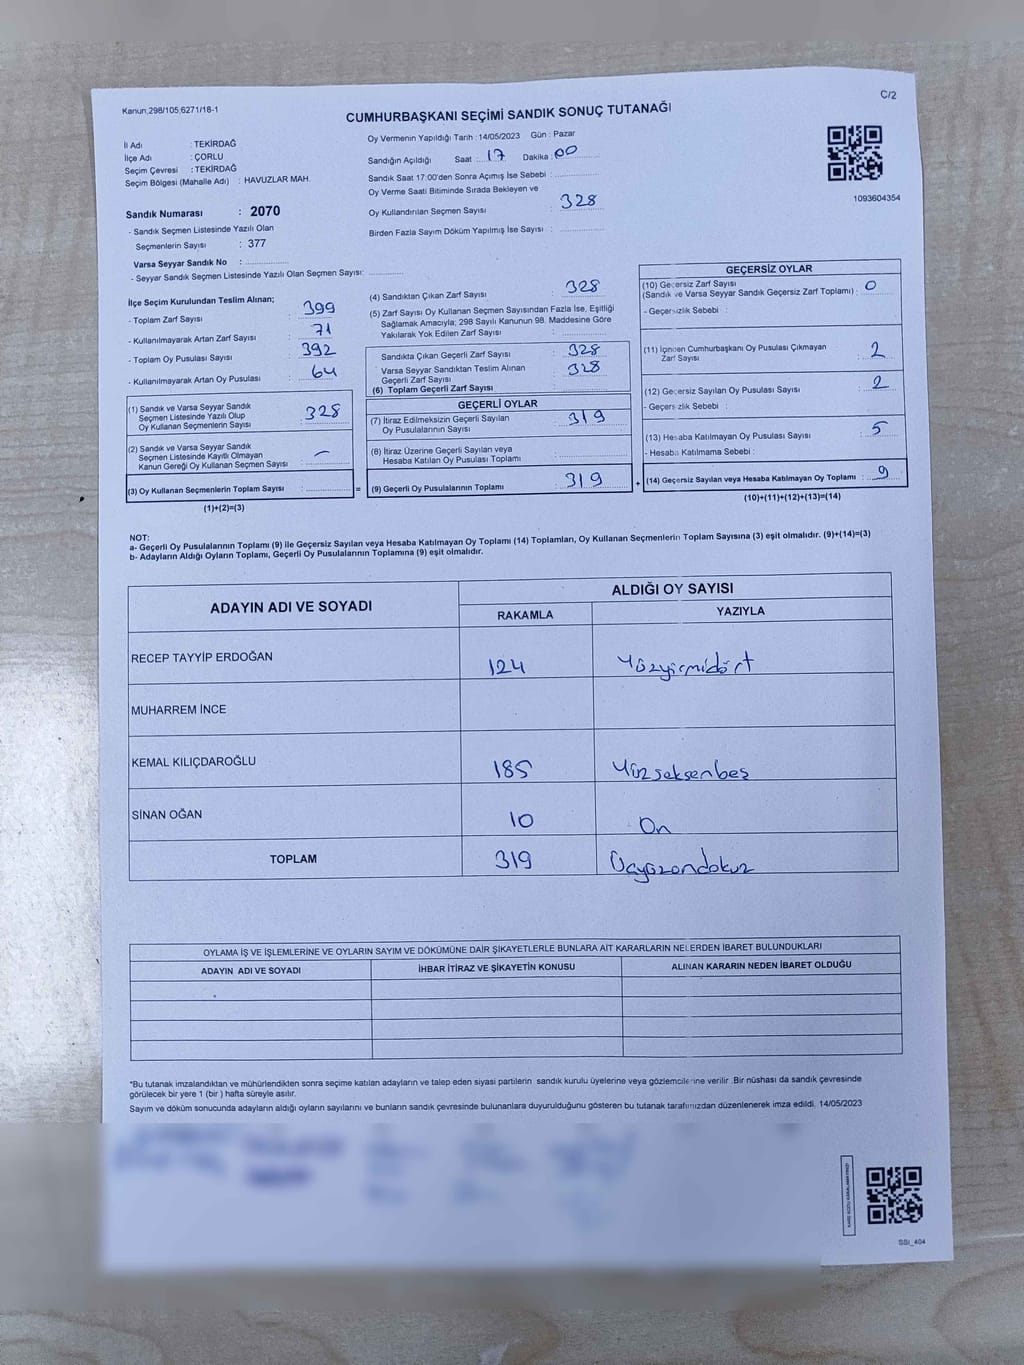 Kanun;298/105;6271/18-1
C/2
CUMHURBAŞKANI SEÇİMİ SANDIK SONUÇ TUTANAĞI
İl Adı : TEKİRDAĞ
İlçe Adı : ÇORLU
Seçim Çevresi : TEKİRDAĞ
Seçim Bölgesi (Mahalle Adı) : HAVUZLAR MAH.
Sandık Numarası : 2070
- Sandık Seçmen Listesinde Yazılı Olan
Seçmenlerin Sayısı : 377
Varsa Seyyar Sandık No :
- Seyyar Sandık Seçmen Listesinde Yazılı Olan Seçmen Sayısı:
Oy Vermenin Yapıldığı Tarih : 14/05/2023 Gün : Pazar
Sandığın Açıldığı Saat : 17 Dakika : 00
Sandık Saat 17:00'den Sonra Açımış İse Sebebi :
Oy Verme Saati Bitiminde Sırada Bekleyen ve
Oy Kullandırılan Seçmen Sayısı : 328
Birden Fazla Sayım Döküm Yapılmış İse Sayısı :
1093604354
İlçe Seçim Kurulundan Teslim Alınan;
- Toplam Zarf Sayısı : 399
- Kullanılmayarak Artan Zarf Sayısı : 71
- Toplam Oy Pusulası Sayısı : 392
- Kullanılmayarak Artan Oy Pusulası : 64
(1) Sandık ve Varsa Seyyar Sandık
Seçmen Listesinde Yazılı Olup
Oy Kullanan Seçmenlerin Sayısı : 328
(2) Sandık ve Varsa Seyyar Sandık
Seçmen Listesinde Kayıtlı Olmayan
Kanun Gereği Oy Kullanan Seçmen Sayısı : –
(3) Oy Kullanan Seçmenlerin Toplam Sayısı :
(1)+(2)=(3)
=
(4) Sandıktan Çıkan Zarf Sayısı : 328
(5) Zarf Sayısı Oy Kullanan Seçmen Sayısından Fazla İse, Eşitliği
Sağlamak Amacıyla; 298 Sayılı Kanunun 98. Maddesine Göre
Yakılarak Yok Edilen Zarf Sayısı :
Sandıkta Çıkan Geçerli Zarf Sayısı : 328
Varsa Seyyar Sandıktan Teslim Alınan
Geçerli Zarf Sayısı : 328
(6) Toplam Geçerli Zarf Sayısı
GEÇERLİ OYLAR
(7) İtiraz Edilmeksizin Geçerli Sayılan
Oy Pusulalarının Sayısı : 319
(8) İtiraz Üzerine Geçerli Sayılan veya
Hesaba Katılan Oy Pusulası Toplamı :
(9) Geçerli Oy Pusulalarının Toplamı : 319
+
GEÇERSİZ OYLAR
(10) Geçersiz Zarf Sayısı
(Sandık ve Varsa Seyyar Sandık Geçersiz Zarf Toplamı) : 0
- Geçersizlik Sebebi :
(11) İçinden Cumhurbaşkanı Oy Pusulası Çıkmayan
Zarf Sayısı : 2
(12) Geçersiz Sayılan Oy Pusulası Sayısı : 2
- Geçersizlik Sebebi :
(13) Hesaba Katılmayan Oy Pusulası Sayısı : 5
- Hesaba Katılmama Sebebi :
(14) Geçersiz Sayılan veya Hesaba Katılmayan Oy Toplamı : 9
(10)+(11)+(12)+(13)=(14)
NOT:
a- Geçerli Oy Pusulalarının Toplamı (9) ile Geçersiz Sayılan veya Hesaba Katılmayan Oy Toplamı (14) Toplamları, Oy Kullanan Seçmenlerin Toplam Sayısına (3) eşit olmalıdır. (9)+(14)=(3)
b- Adayların Aldığı Oyların Toplamı, Geçerli Oy Pusulalarının Toplamına (9) eşit olmalıdır.
ADAYIN ADI VE SOYADI
ALDIĞI OY SAYISI
RAKAMLA YAZIYLA
RECEP TAYYİP ERDOĞAN 124 Yüzyirmidört
MUHARREM İNCE
KEMAL KILIÇDAROĞLU 185 Yüzseksenbeş
SİNAN OĞAN 10 On
TOPLAM 319 Üçyüzondokuz
OYLAMA İŞ VE İŞLEMLERİNE VE OYLARIN SAYIM VE DÖKÜMÜNE DAİR ŞİKAYETLERLE BUNLARA AİT KARARLARIN NELERDEN İBARET BULUNDUKLARI
ADAYIN ADI VE SOYADI İHBAR İTİRAZ VE ŞİKAYETİN KONUSU ALINAN KARARIN NEDEN İBARET OLDUĞU
*Bu tutanak imzalandıktan ve mühürlendikten sonra seçime katılan adayların ve talep eden siyasi partilerin sandık kurulu üyelerine veya gözlemcilerine verilir .Bir nüshası da sandık çevresinde
görülecek bir yere 1 (bir ) hafta süreyle asılır.
Sayım ve döküm sonucunda adayların aldığı oyların sayılarını ve bunların sandık çevresinde bulunanlara duyurulduğunu gösteren bu tutanak tarafımızdan düzenlenerek imza edildi. 14/05/2023
SSI_404